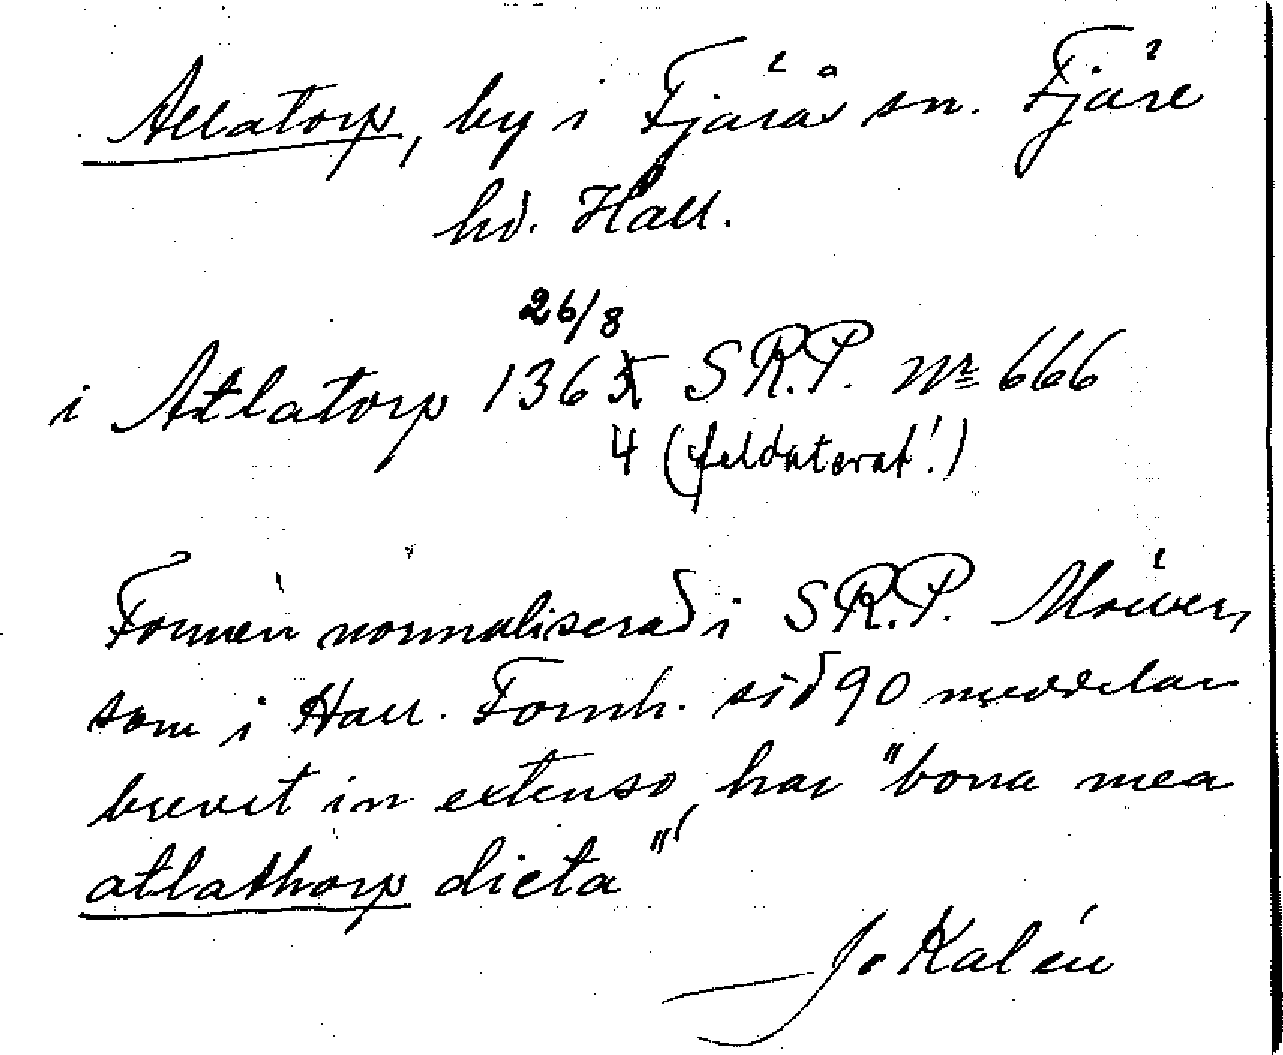 Allatorp, by i Fjärås sn. Fjäre
hd. Hall.
26/8
i Atlatorp 1365 S.R.P. No 666
4 (feldaterat!)
Formen normaliserad i S.R.P. Möller,
som i Hall. Fornh. sid 90 meddelar
brevet in extenso, har "bona mea
atlathorp dicta"
J. Kalén